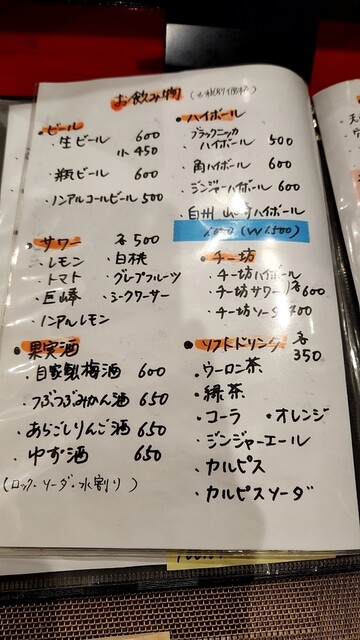 お飲み物
・ビール
・生ビール 600
小 450
・瓶ビール 600
・ノンアルコールビール 500
・サワー 各500
・レモン ・白桃
・トマト ・グレープフルーツ
・巨峰 ・シークワーサー
・ノンアルレモン
・果実酒
・自家製梅酒 600
・つぶつぶみかん酒 650
・あらごしりんご酒 650
・ゆず酒 650
(ロック・ソーダ・水割り)
・ハイボール
・ブラックニッカ
ハイボール 500
・角ハイボール 600
・ジンジャーハイボール 600
・白州 山崎ハイボール
(W1.500)
・チー坊
・チー坊ハイボール
・チー坊サワー 各600
・チー坊ソーダ
・ソフトドリンク 各
350
・ウーロン茶
・緑茶
・コーラ ・オレンジ
・ジンジャーエール
・カルピス
・カルピスソーダ